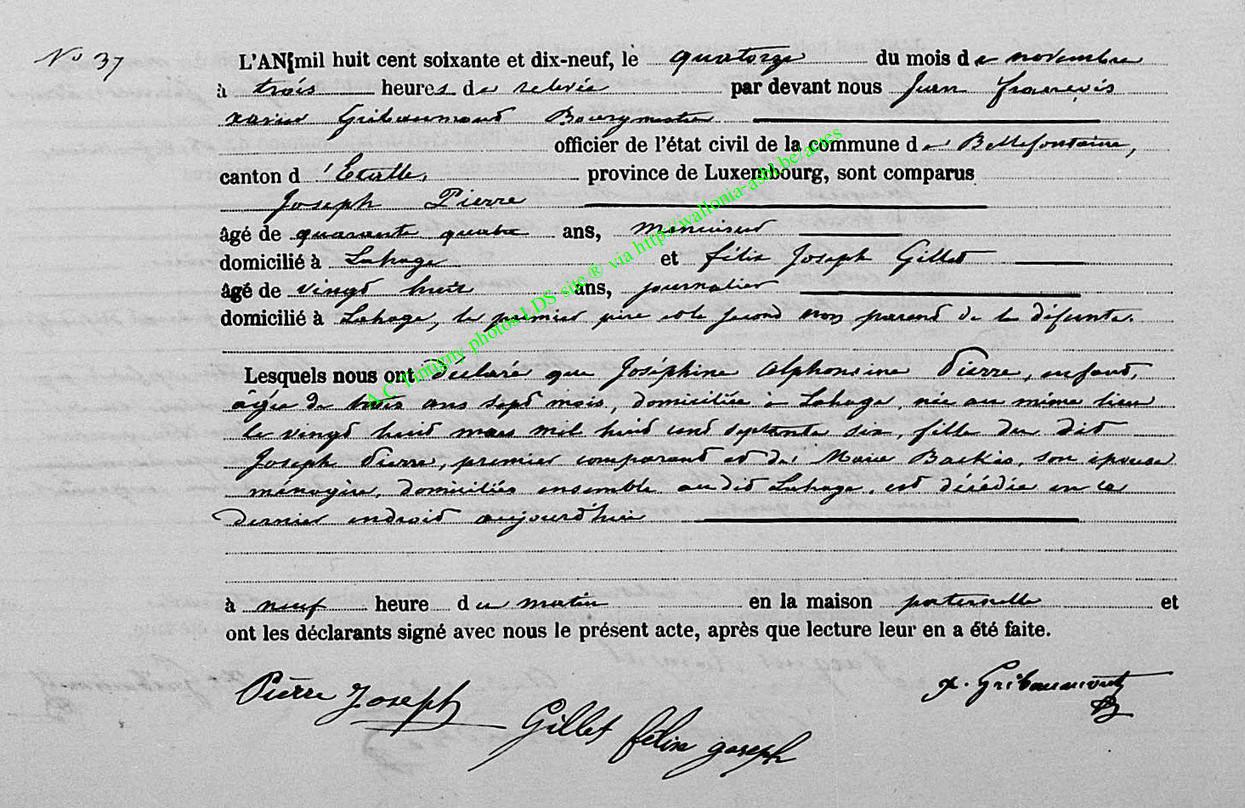 N° 37
L'AN mil huit cent soixante et dix-neuf, le quatorze du mois de novembre
à trois heures de relevée par devant nous Jean françois
xavier Gribaumont Bourgmestre
officier de l'état civil de la commune de Bellefontaine,
canton d'Etalle, province de Luxembourg, sont comparus
Joseph Pierre
âgé de quarante quatre ans, menuisier
domicilié à Lahage et félix Joseph Gillet
âgé de vingt huit ans, journalier
domicilié à Lahage, le premier père et le second non parent de la défunte.
Lesquels nous ont déclaré que Joséphine Alphonsine Pierre, enfant,
agée de trois ans sept mois, domiciliée à Lahage, née au même lieu
le vingt huit mars mil huit cent septante six, fille du dit
Joseph Pierre, premier comparant et de Marie Backès, son épouse
ménagère, domiciliés ensemble au dit Lahage, est décédée en ce
dernier endroit aujourd'hui
à neuf heure du matin en la maison paternelle et
ont les déclarants signé avec nous le présent acte, après que lecture leur en a été faite.
Pierre Joseph
Gillet félix joseph
x. Gribaumont
A.C. Tintigny photos LDS site ® via http://wallonia-asbl.be/actes